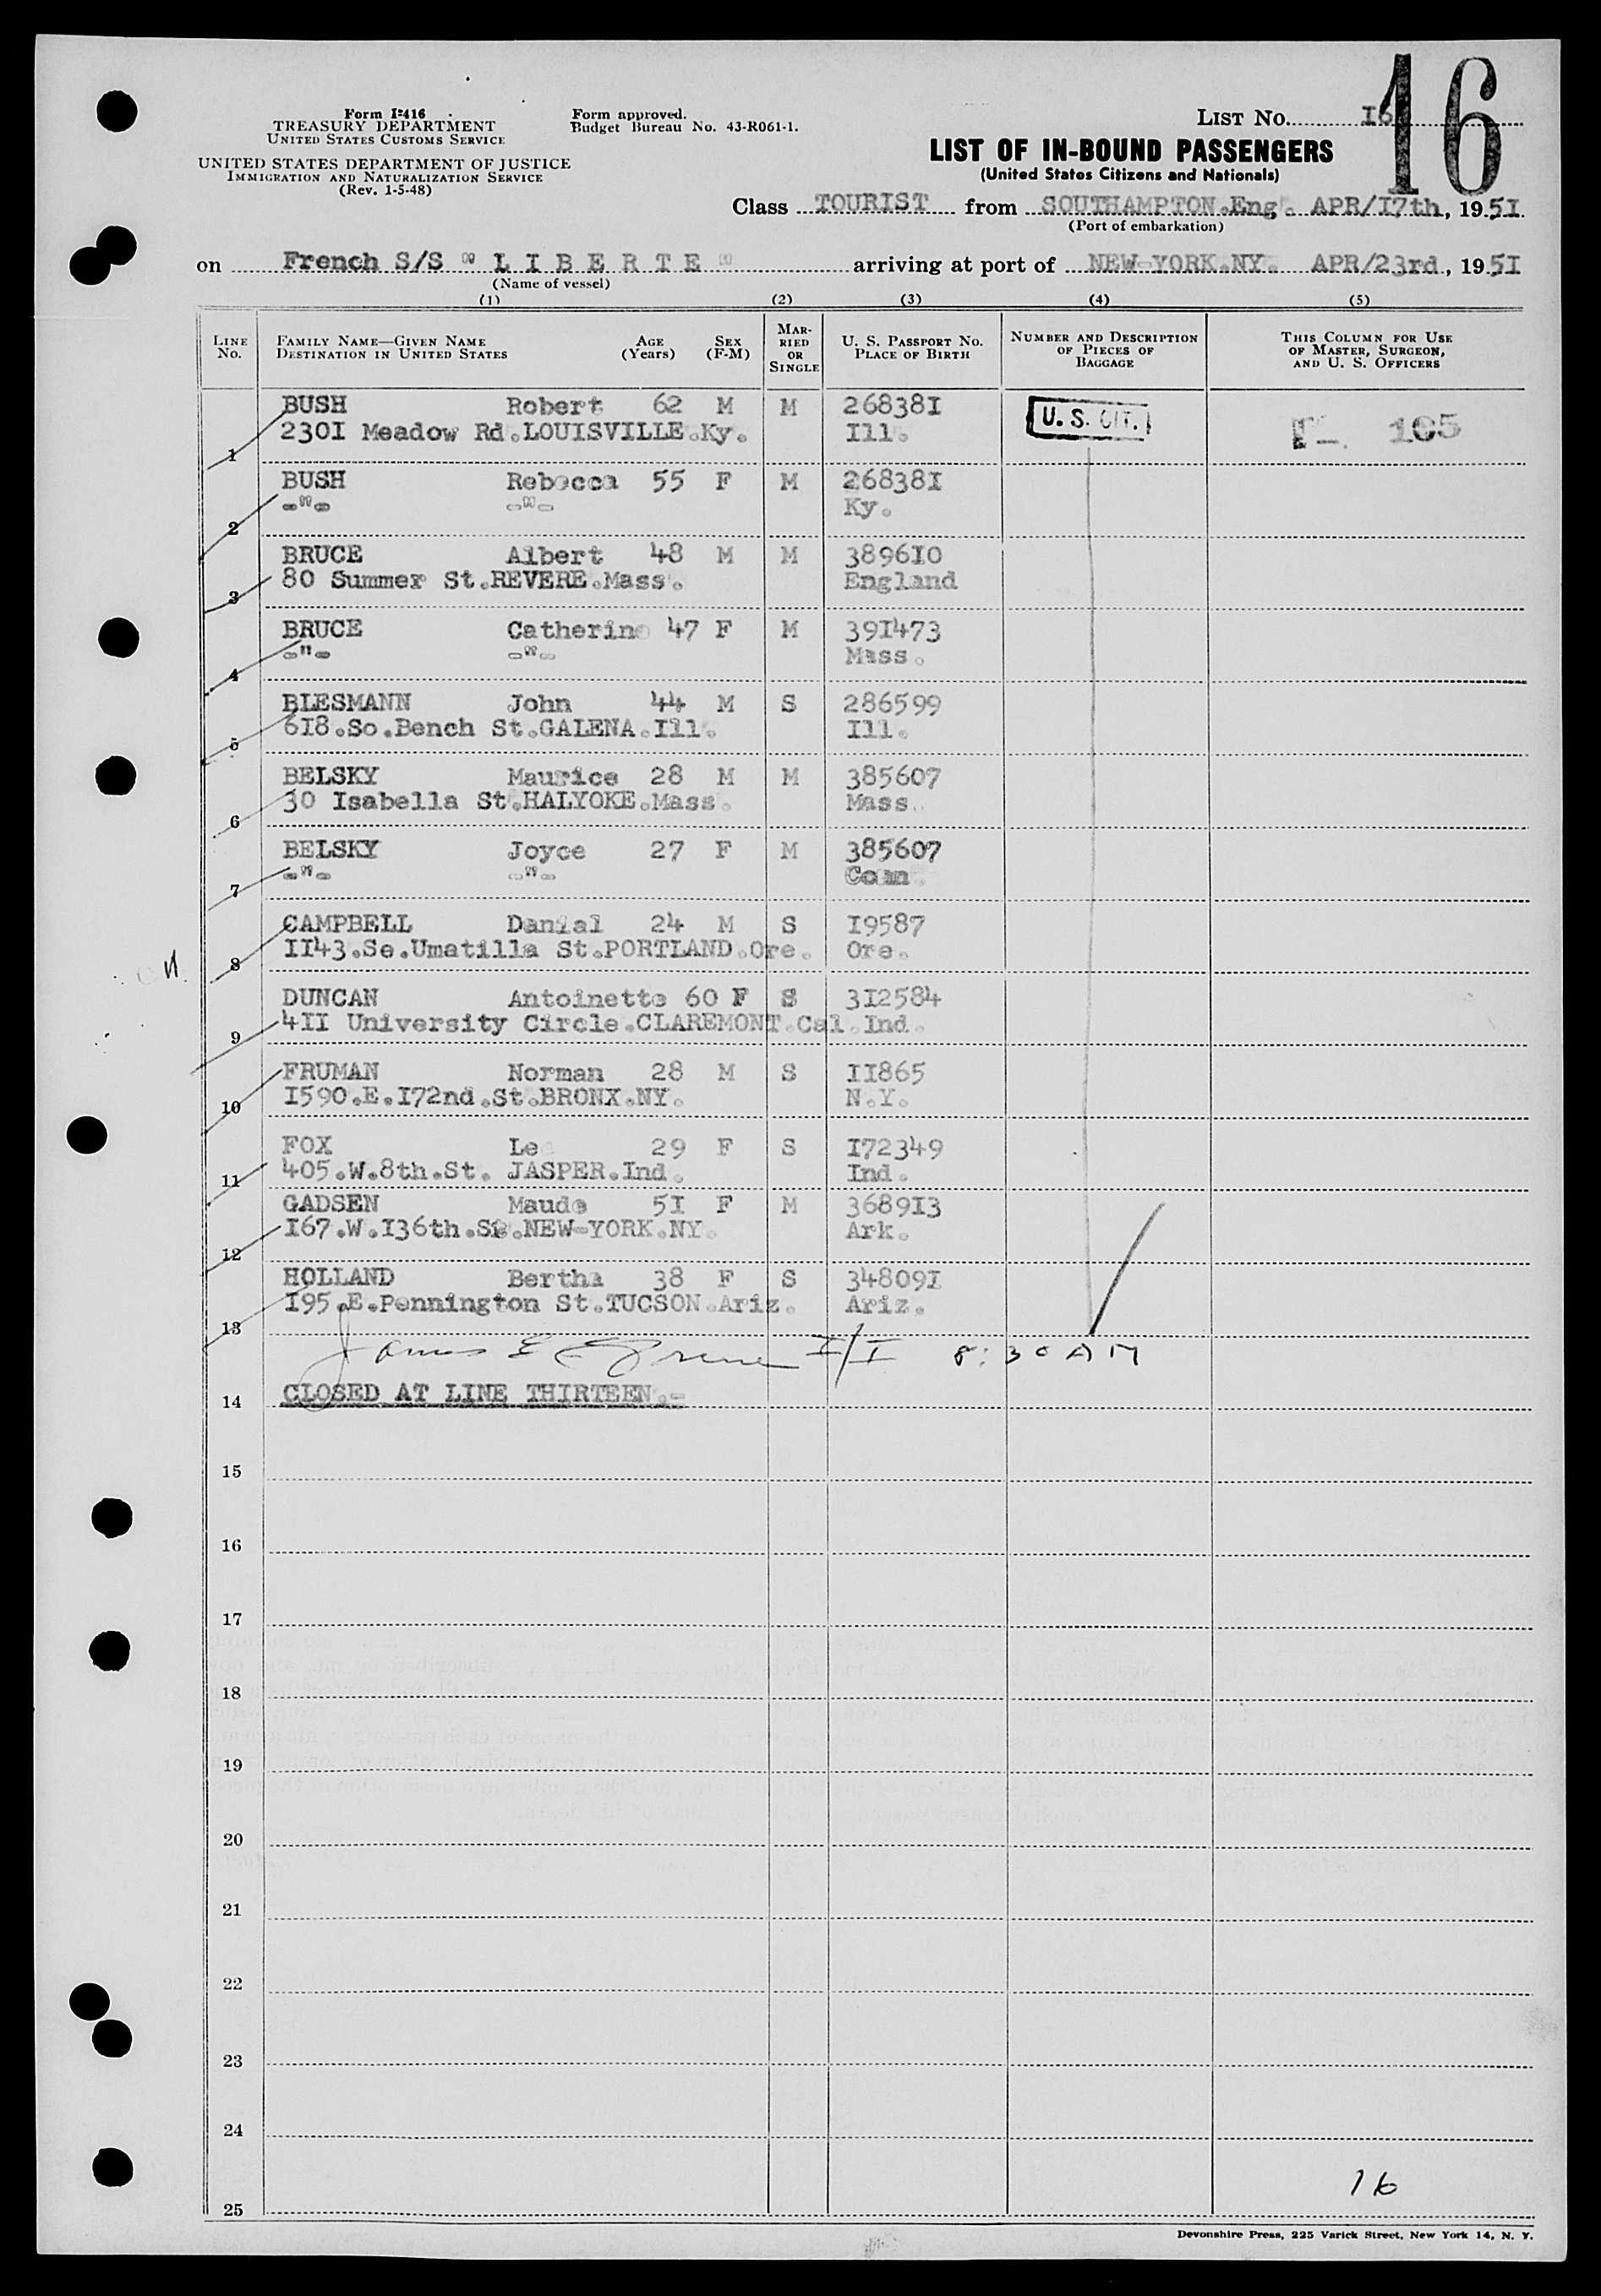 Form I-416
TREASURY DEPARTMENT
UNITED STATES CUSTOMS SERVICE
UNITED STATES DEPARTMENT OF JUSTICE
IMMIGRATION AND NATURALIZATION SERVICE
(Rev. 1-5-48)
Form approved.
Budget Bureau No. 43-R061-1.
LIST No. I6
16
LIST OF IN-BOUND PASSENGERS
(United States Citizens and Nationals)
Class TOURIST from SOUTHAMPTON.Eng. APR/I7th, 1951
(Port of embarkation)
on French S/S " L I B E R T E " arriving at port of NEW-YORK.NY. APR/23rd, 1951
(Name of vessel)
(1) (2) (3) (4) (5)
LINE No. FAMILY NAME—GIVEN NAME DESTINATION IN UNITED STATES AGE (Years) SEX (F-M) MARRIED OR SINGLE U. S. PASSPORT NO. PLACE OF BIRTH NUMBER AND DESCRIPTION OF PIECES OF BAGGAGE THIS COLUMN FOR USE OF MASTER, SURGEON, AND U. S. OFFICERS
BUSH Robert 62 M M 26838I U. S. CIT. 105
1 230I Meadow Rd.LOUISVILLE.Ky. Ill.
BUSH Rebecca 55 F M 26838I
2 -"- -"- Ky.
BRUCE Albert 48 M M 3896I0
3 80 Summer St.REVERE.Mass. England
BRUCE Catherine 47 F M 39I473
4 -"- -"- Mass.
BIESMANN John 44 M S 286599
5 6I8.So.Bench St.GALENA.Ill. Ill.
BELSKY Maurice 28 M M 385607
6 30 Isabella St.HALYOKE.Mass. Mass.
BELSKY Joyce 27 F M 385607
7 -"- -"- Conn.
CAMPBELL Danial 24 M S I9587
8 II43.Se.Umatilla St.PORTLAND.Ore. Ore.
DUNCAN Antoinette 60 F S 3I2584
9 4II University Circle.CLAREMONT.Cal. Ind.
FRUMAN Norman 28 M S II865
10 I590.E.I72nd.St.BRONX.NY. N.Y.
FOX Le 29 F S I72349
11 405.W.8th.St. JASPER.Ind. Ind.
GADSEN Maude 5I F M 3689I3
12 I67.W.I36th.St.NEW-YORK.NY. Ark.
HOLLAND Bertha 38 F S 34809I
13 I95.E.Pennington St.TUCSON.Ariz. Ariz.
James E I/I 8:30 AM
14 CLOSED AT LINE THIRTEEN.-
15
16
17
18
19
20
21
22
23
24
16
25
Devonshire Press, 225 Varick Street, New York 14, N. Y.